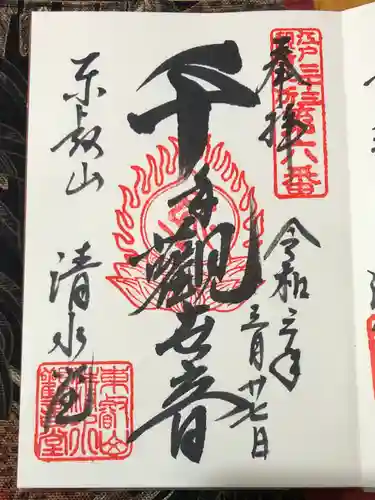 奉拝
江戸三十三
第六番
令和三年
三月廿七日
千手觀世音
東叡山 清水堂
東叡山
清水
觀音堂